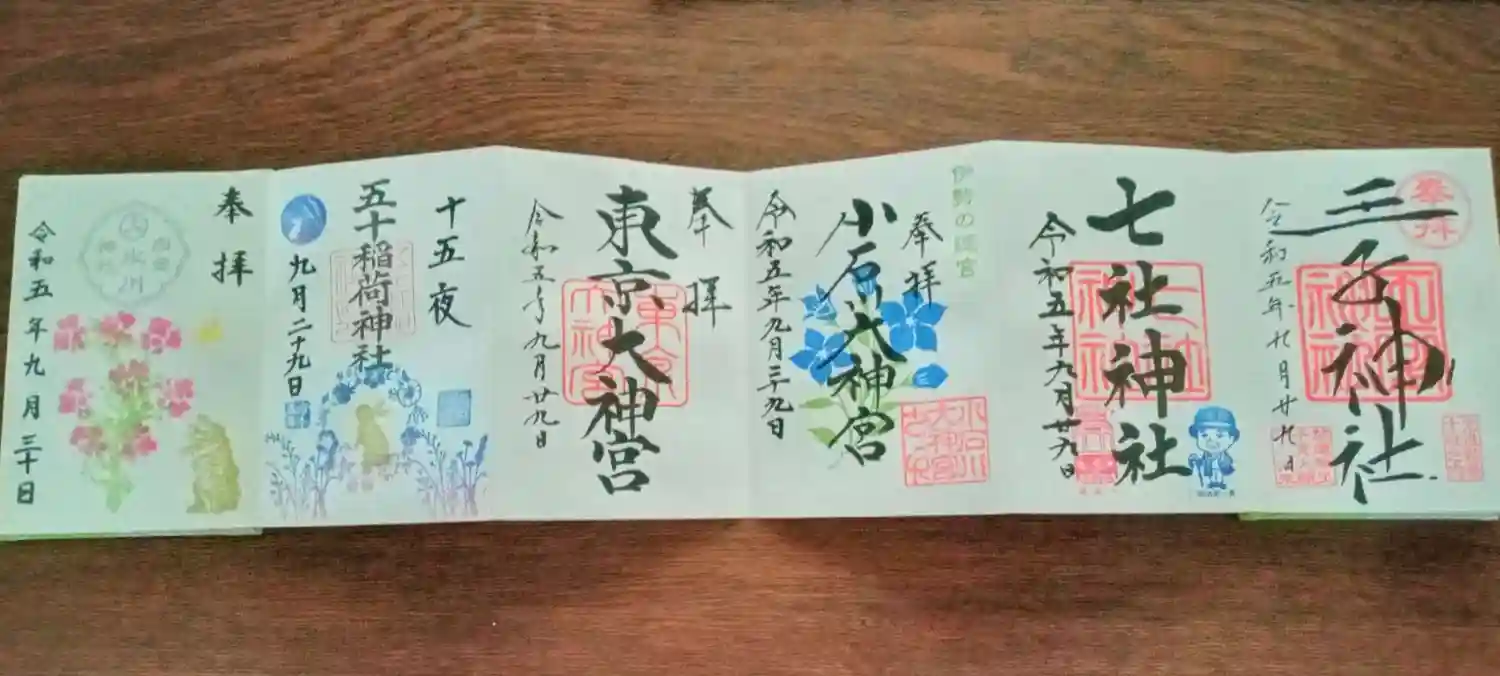 奉拝
王子神社
令和五年九月廿九日
七社神社
令和五年九月廿九日
伊勢の
奉拝
小石川大神宮
令和五年九月二十九日
奉拝
東京大神宮
令和五年九月廿九日
十五夜
五十稲荷神社
九月二十九日
奉拝
氷川
神社
令和五年九月三十日